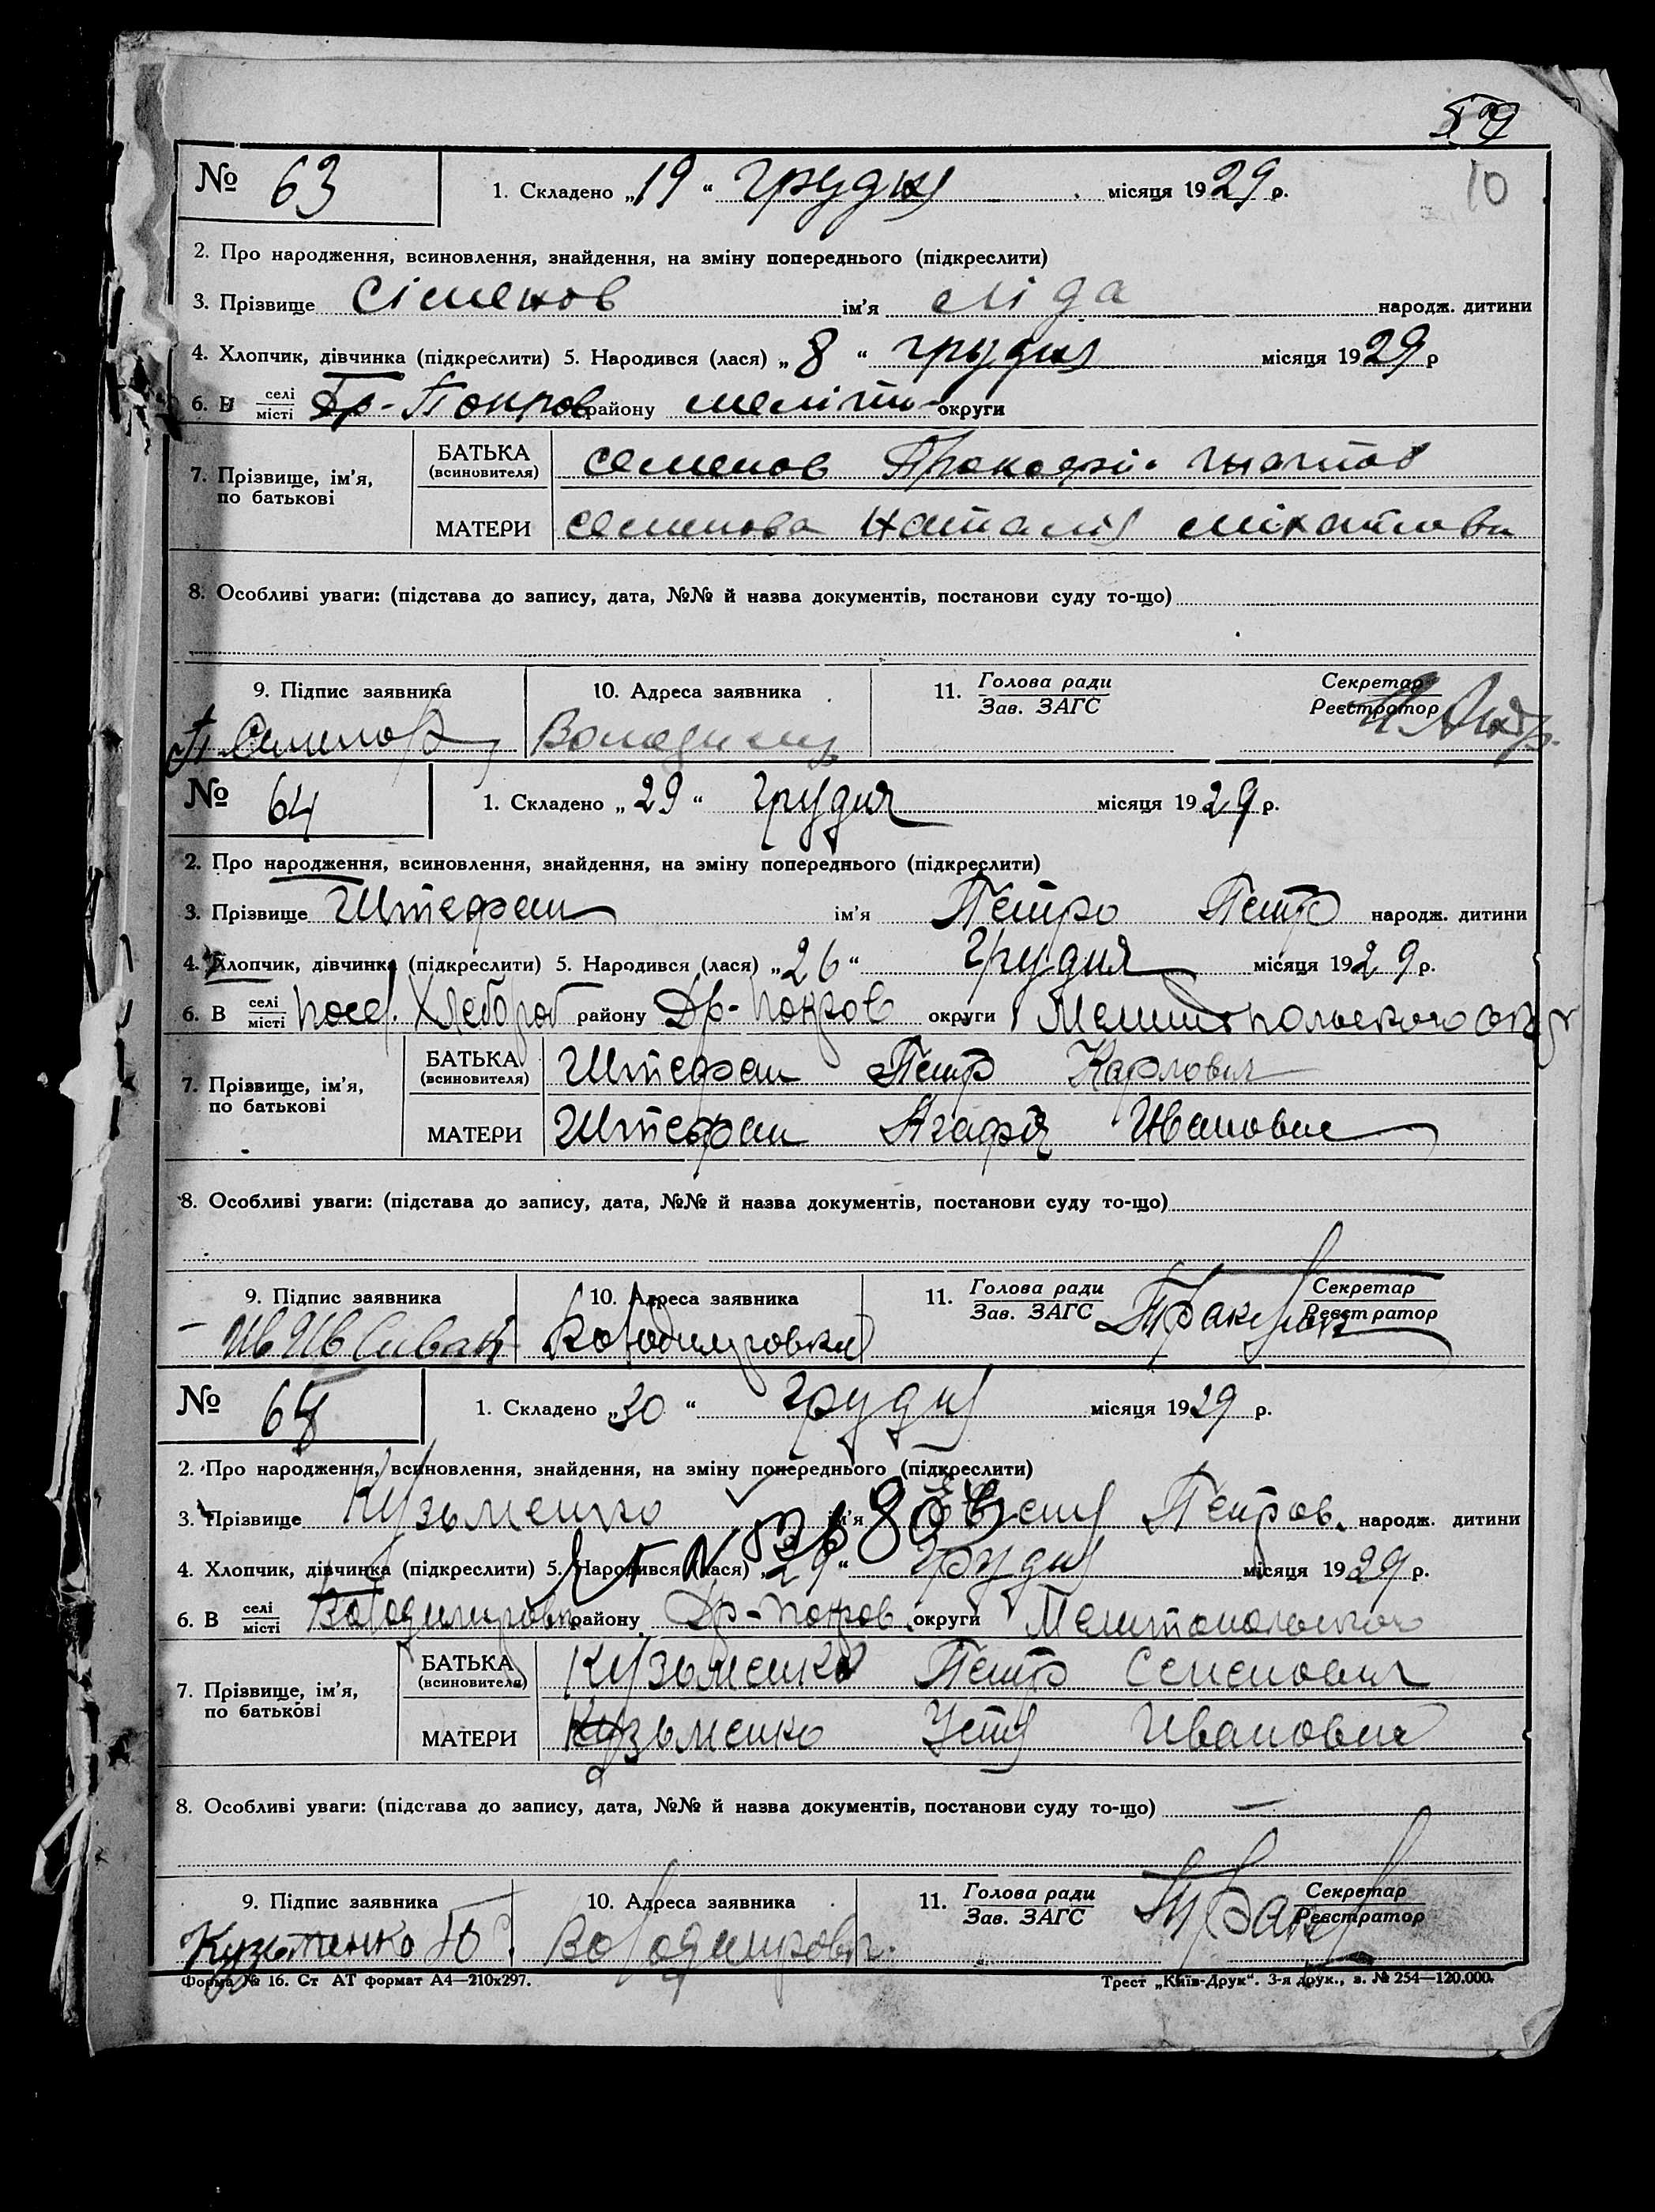 10
№ 63 1. Складено „19“ грудня місяця 1929 р.
2. Про народження, всиновлення, знайдення, на зміну попереднього (підкреслити)
3. Прізвище Сіменов ім'я Ліда народж. дитини
4. Хлопчик, дівчинка (підкреслити) 5. Народився (лася) „8“ грудня місяця 1929 р
6. В селі місті Др-Покров району Меліт округи
7. Прізвище, ім'я, по батькові БАТЬКА (всиновителя) Семенов
МАТЕРИ Семенова Наталія
8. Особливі уваги: (підстава до запису, дата, №№ й назва документів, постанови суду то-що)
9. Підпис заявника 10. Адреса заявника 11. Голова ради Зав. ЗАГС Секретар Реєстратор
П Семенов
№ 64 1. Складено „29“ грудня місяця 1929 р.
2. Про народження, всиновлення, знайдення, на зміну попереднього (підкреслити)
3. Прізвище Штефан ім'я Петро Петр народж. дитини
4. Хлопчик, дівчинка (підкреслити) 5. Народився (лася) „26“ Грудня місяця 1929 р.
6. В селі місті посел. Хлебороб району Др-Покров округи Мелитопольского окр
7. Прізвище, ім'я, по батькові БАТЬКА (всиновителя) Штефан Петр Карлович
МАТЕРИ Штефан Агафія Ивановне
8. Особливі уваги: (підстава до запису, дата, №№ й назва документів, постанови суду то-що)
9. Підпис заявника 10. Адреса заявника 11. Голова ради Зав. ЗАГС Секретар Реєстратор
Володимировка
№ 1. Складено „30“ грудня місяця 1929 р.
2. Про народження, всиновлення, знайдення, на зміну попереднього (підкреслити)
3. Прізвище Кузьменко ім'я Петров. народж. дитини
4. Хлопчик, дівчинка (підкреслити) 5. Народився (лася) „29“ Грудня місяця 1929 р.
6. В селі місті Володимировк району Др-Покров. округи Мелитопольского
7. Прізвище, ім'я, по батькові БАТЬКА (всиновителя) Кузьменко Петр Семенович
МАТЕРИ Кузьменко Устя Ивановне
8. Особливі уваги: (підстава до запису, дата, №№ й назва документів, постанови суду то-що)
9. Підпис заявника 10. Адреса заявника 11. Голова ради Зав. ЗАГС Секретар Реєстратор
Кузьменко Володимировк.
Форма № 16. Ст АТ формат А4—210х297. Трест „Київ-Друк“. 3-я друк., з. № 254—120.000.